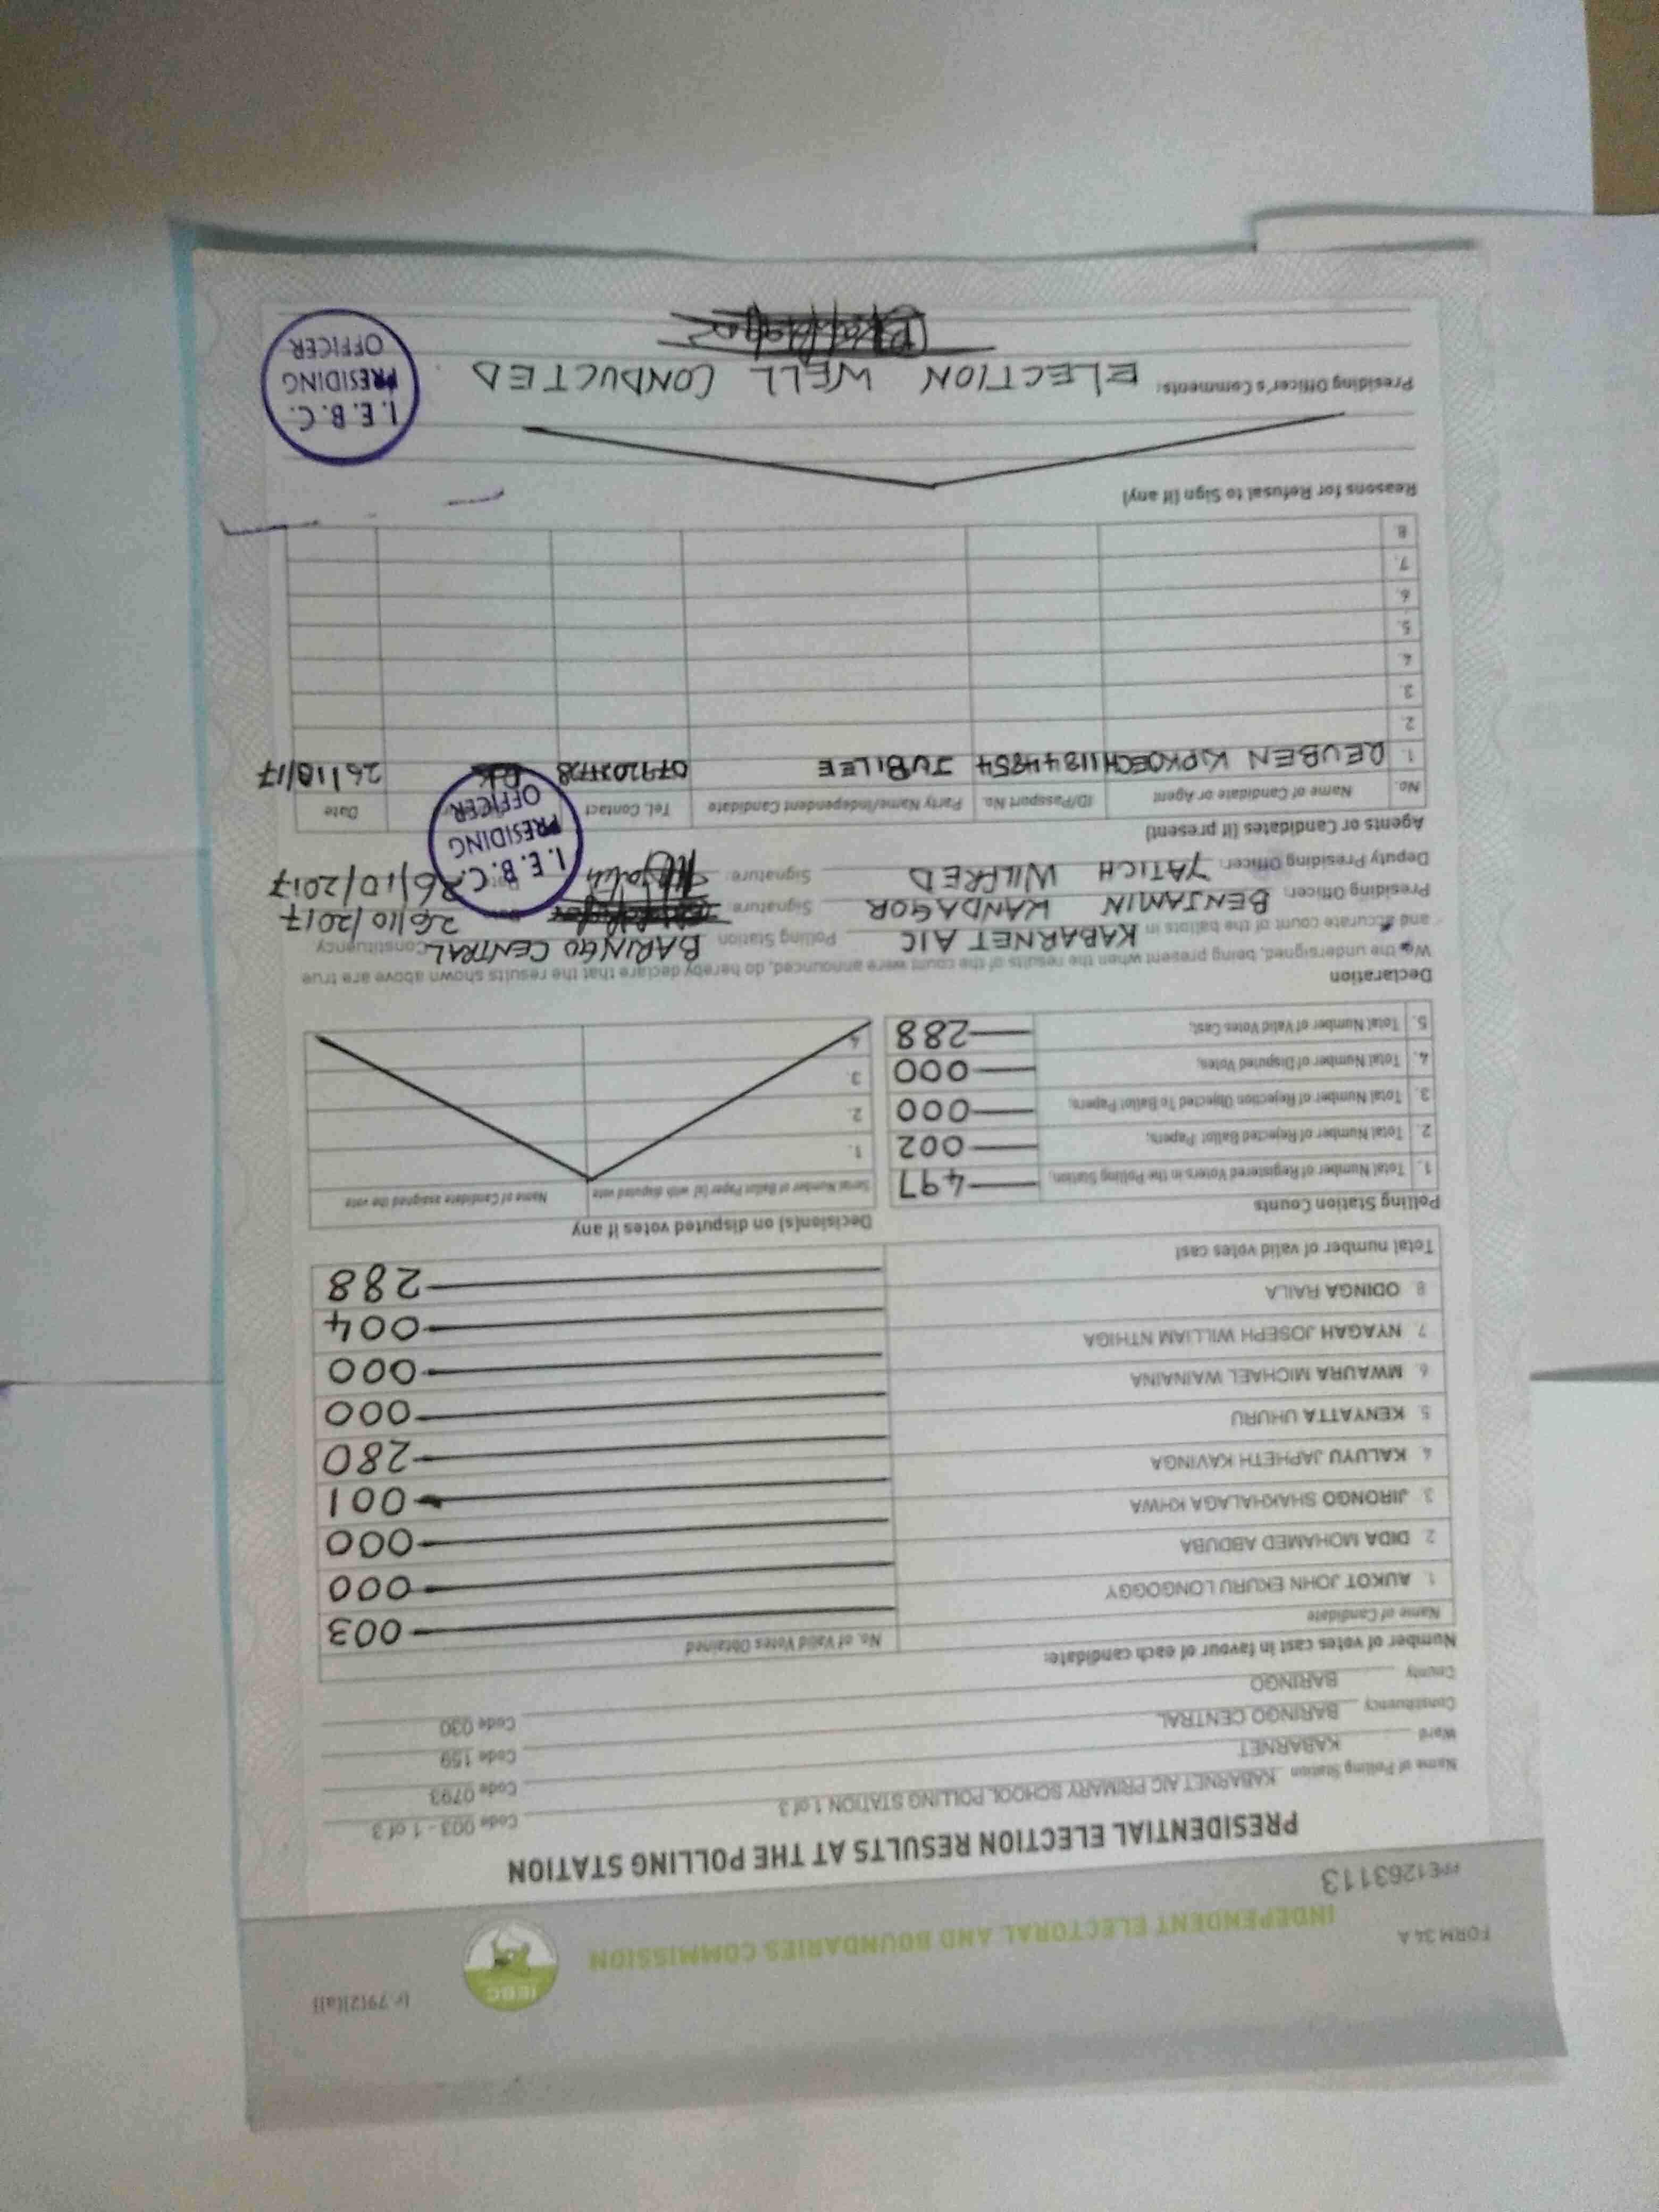 FORM 34 A
[r 79[2][a]]
INDEPENDENT ELECTORAL AND BOUNDARIES COMMISSION
IEBC
PRE1263113
PRESIDENTIAL ELECTION RESULTS AT THE POLLING STATION
Name of Polling Station KABARNET AIC PRIMARY SCHOOL POLLING STATION 1 of 3 Code 003 - 1 of 3
Ward KABARNET Code 0793
Constituency BARINGO CENTRAL Code 159
County BARINGO Code 030
Number of votes cast in favour of each candidate:
Name of Candidate No. of Valid Votes Obtained
1. AUKOT JOHN EKURU LONGOGGY 003
2. DIDA MOHAMED ABDUBA 000
3. JIRONGO SHAKHALAGA KHWA 000
4. KALUYU JAPHETH KAVINGA 001
5. KENYATTA UHURU 280
6. MWAURA MICHAEL WAINAINA 000
7. NYAGAH JOSEPH WILLIAM NTHIGA 000
8. ODINGA RAILA 004
Total number of valid votes cast 288
Polling Station Counts
1. Total Number of Registered Voters in the Polling Station; 497
2. Total Number of Rejected Ballot Papers; 002
3. Total Number of Rejection Objected To Ballot Papers; 000
4. Total Number of Disputed Votes; 000
5. Total Number of Valid Votes Cast; 288
Decision[s] on disputed votes if any
Serial Number of Ballot Paper [s] with disputed vote Name of Candidate assigned the vote
1.
2.
3.
4.
Declaration
We the undersigned, being present when the results of the count were announced, do hereby declare that the results shown above are true
and accurate count of the ballots in KABARNET AIC Polling Station BARINGO CENTRAL Constituency
Presiding Officer: BENJAMIN KANDAGOR Signature: 26/10/2017
Deputy Presiding Officer: YATICH WILFRED Signature: 26/10/2017
I. E. B. C. PRESIDING OFFICER
Agents or Candidates [if present]
No. Name of Candidate or Agent ID/Passport No. Party Name/Independent Candidate Tel. Contact Date
1. REUBEN KIPKOECH JUBILEE 26/10/17
2.
3.
4.
5.
6.
7.
8.
Reasons for Refusal to Sign [if any]
Presiding Officer's Comments: ELECTION WELL CONDUCTED
I. E. B. C.
PRESIDING
OFFICER